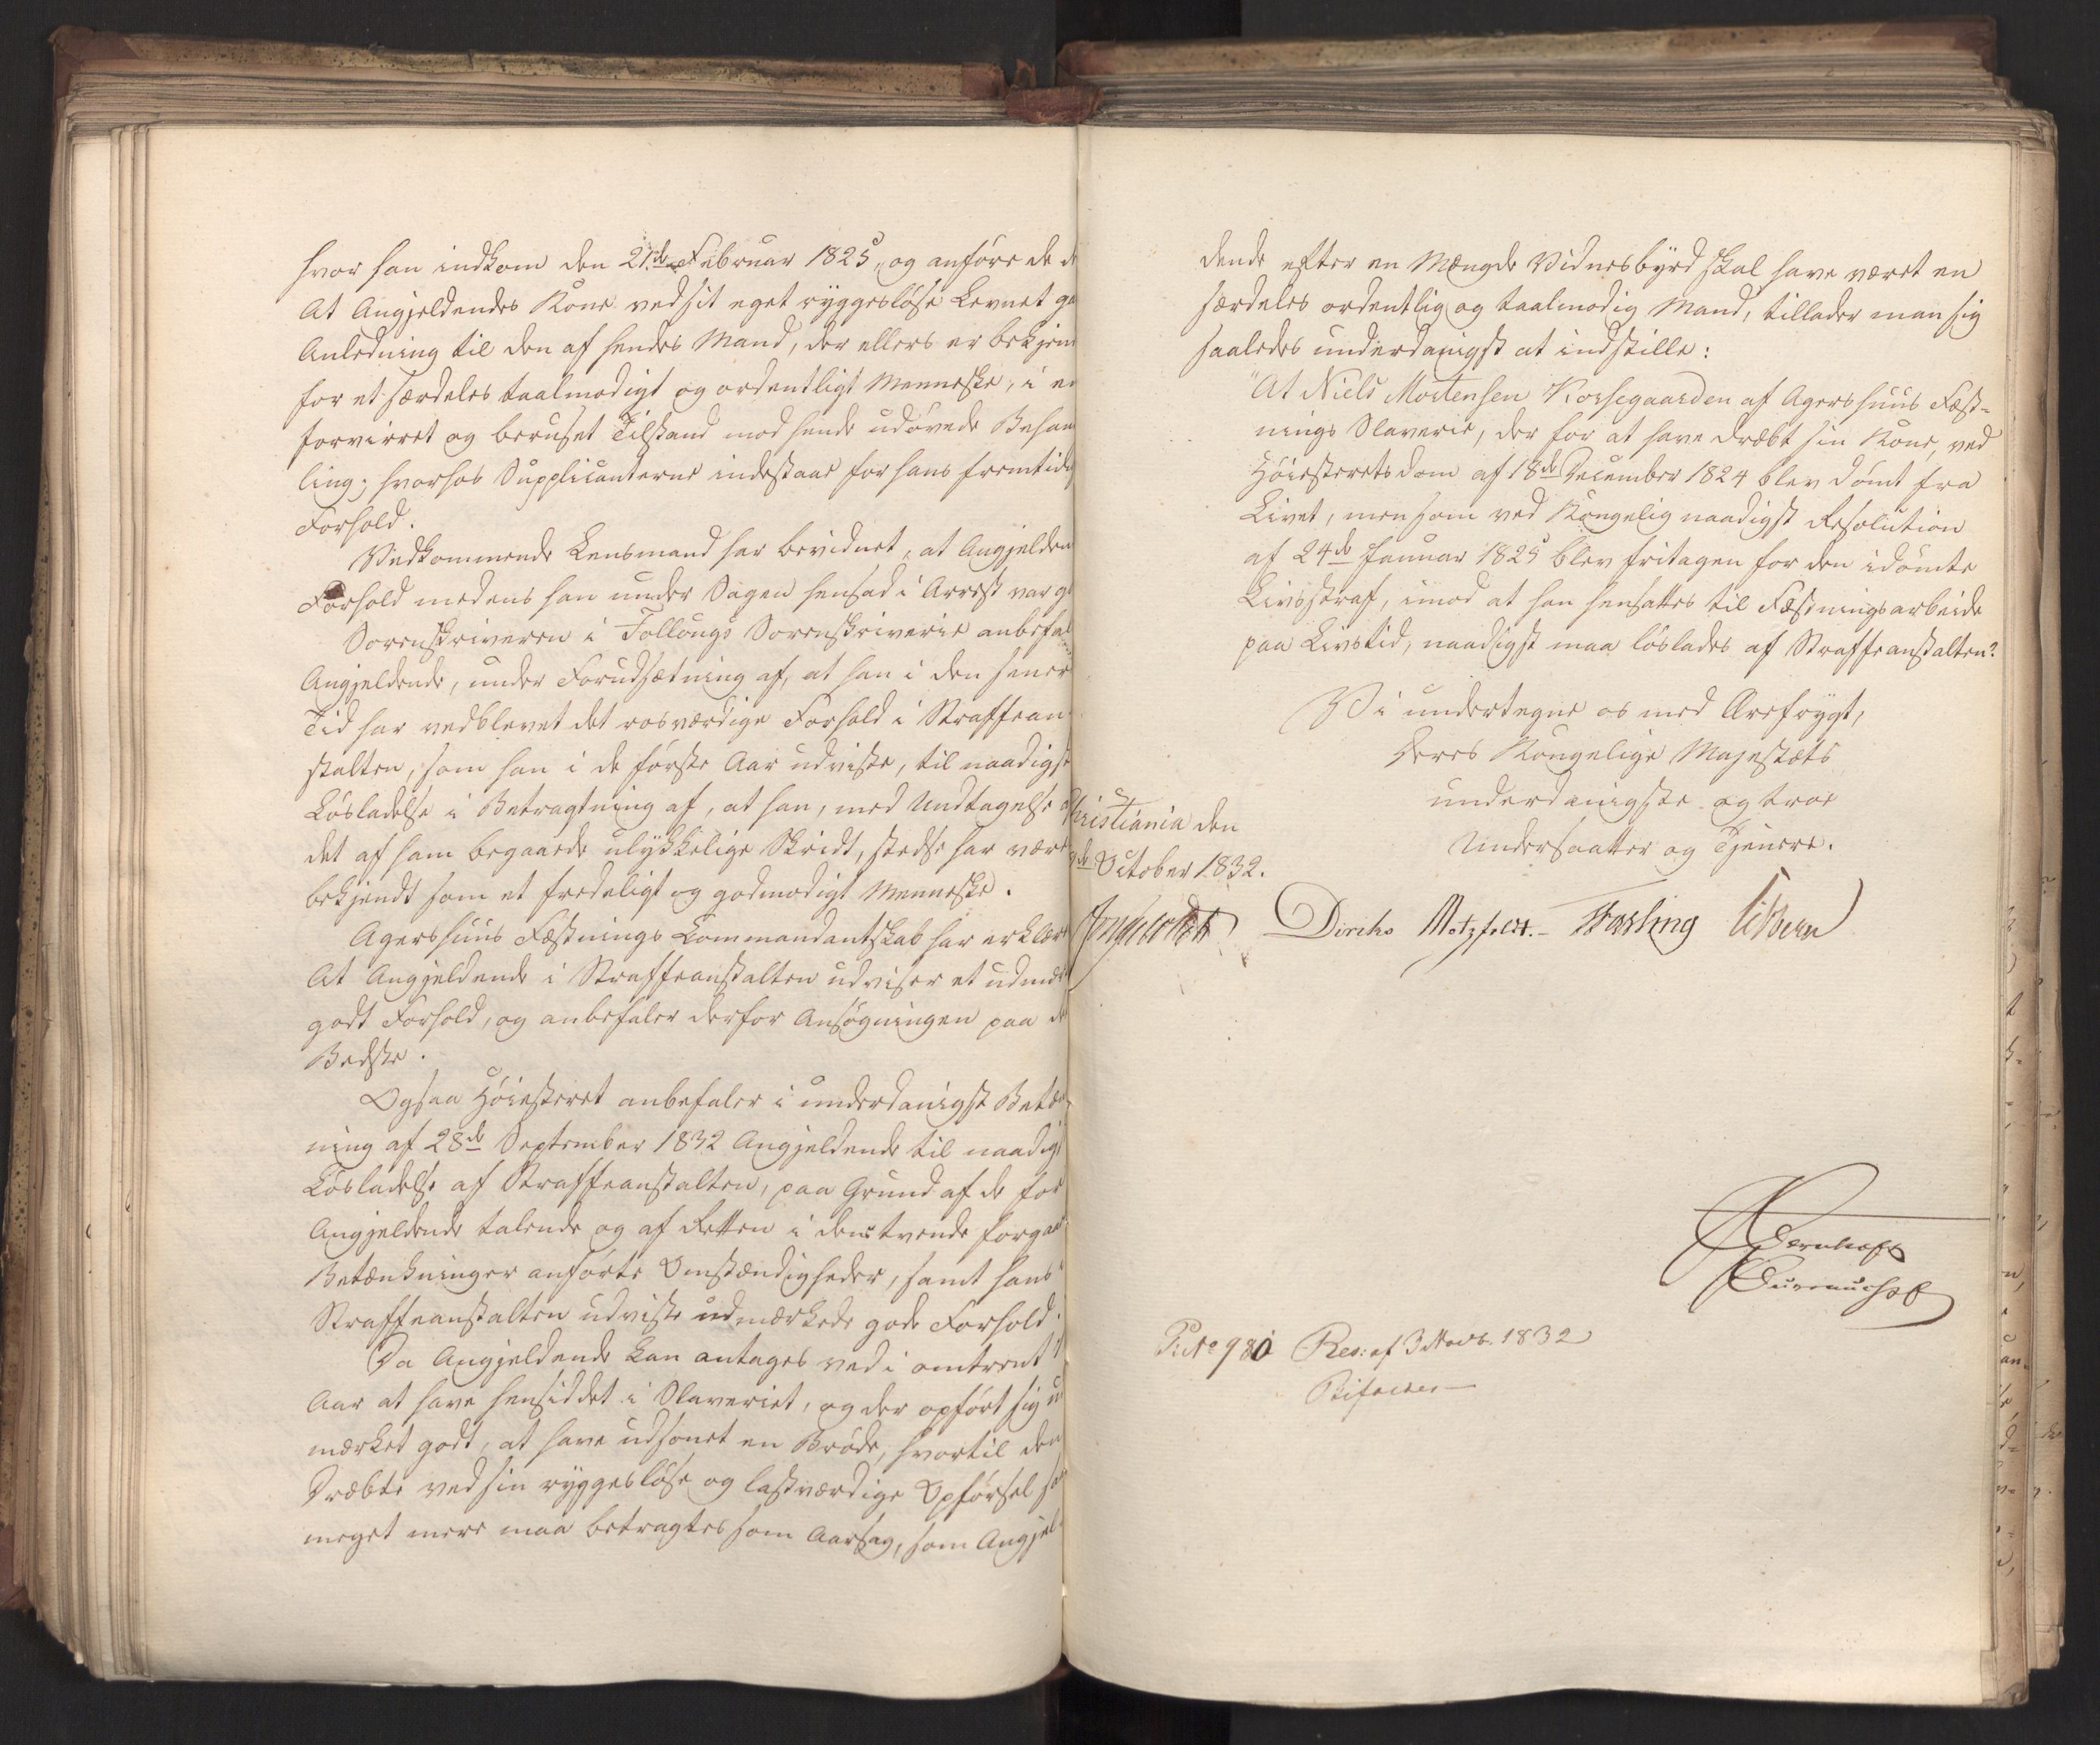 hvor han indkom den 21de Februar 1825, og anføre de
At Angjeldendes Kone ved sit eget ryggesløse Levnet ga
Anledning til den af hendes Mand, der ellers er bekjen
for et særdeles taalmodigt og ordentligt Menneske, i en
forvirret og beruset Tilstand mod hende udøvede Behan
ling; hvorhos Supplicanterne indestaae for hans fremtidi
Forhold.
Vedkommende Lensmand har bevidnet, at Angjelden
Forhold medens han under Sagen hensad i Arrest var g
Sorenskriveren i Follougs Sorenskriverie anbefal
Angjeldende, under Forudsætning af, at han i den sener
Tid har vedblevet det rosværdige Forhold i Straffean
stalten, som han i de første Aar udviste, til naadigst
Løsladelse i Betragtning af, at han, med Undtagelse a
det af ham begaaede ulykkelige Skridt, stedse har være
bekjendt som et fredeligt og godmodigt Menneske.
Agershuus Fæstnings Commandantskab har erklær
At Angjeldende i Straffeanstalten udviser et udmær
godt Forhold, og anbefaler derfor Ansøgningen paa de
Bedste.
Ogsaa Høiesteret anbefaler i underdanigst Betæn
ning af 28de September 1832 Angjeldende til naadigs
Løsladelse af Straffeanstalten, paa Grund af de for
Angjeldende talende og af Retten i dens tvende forgaae
Betænkninger anførte Omstændigheder, samt hans i
Straffeanstalten udviste udmærkede gode Forhold.
Da Angjeldende kan antages ved i omtrent
Aar at have hensiddet i Slaveriet, og der opført sig ud
mærket godt, at have udsonet en Brøde, hvortil den
Dræbte ved sin ryggesløse og lastværdige Opførsel saa
meget mere maa betragtes som Aarsag, som Angjel-
dende efter en Mængde Vidnesbyrd skal have været en
særdeles ordentlig og taalmodig Mand, tillader man sig
saaledes underdanigst at indstille:
"At Niels Mortensen Korsegaarden af Agershuus Fæst-
nings Slaverie, der for at have dræbt sin Kone, ved
Høiesteretsdom af 18de December 1824 blev dømt fra
Livet, men som ved Kongelig naadigst Resolution
af 24de Januar 1825 blev fritagen for den idømte
Livsstraf, imod at han hensattes til Fæstningsarbeide
paa Livstid, naadigst maa løslades af Straffeanstalten?
Vi undertegne os med Ærefrygt,
Deres Kongelige Majestæts
underdanigste og troe
Undersaatter og Tjenere.
Christiania den
de October 1832.
Diriks Motzfeldt. Fasting
P: No 980 Res: af 3 Novb. 1832
Bifaldes